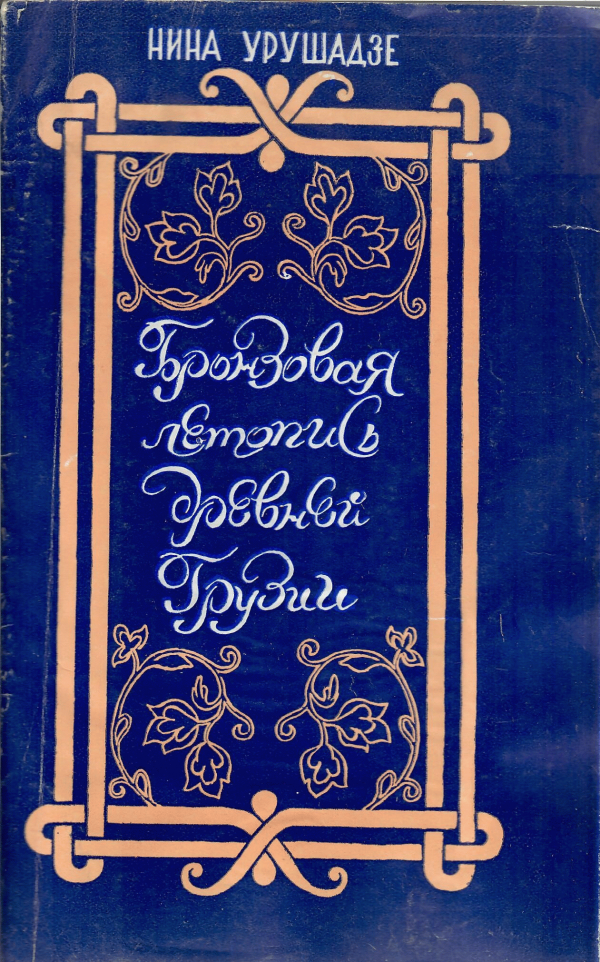 НИНА УРУШАДЗЕ
Бронзовая
летопись
древней
Грузии